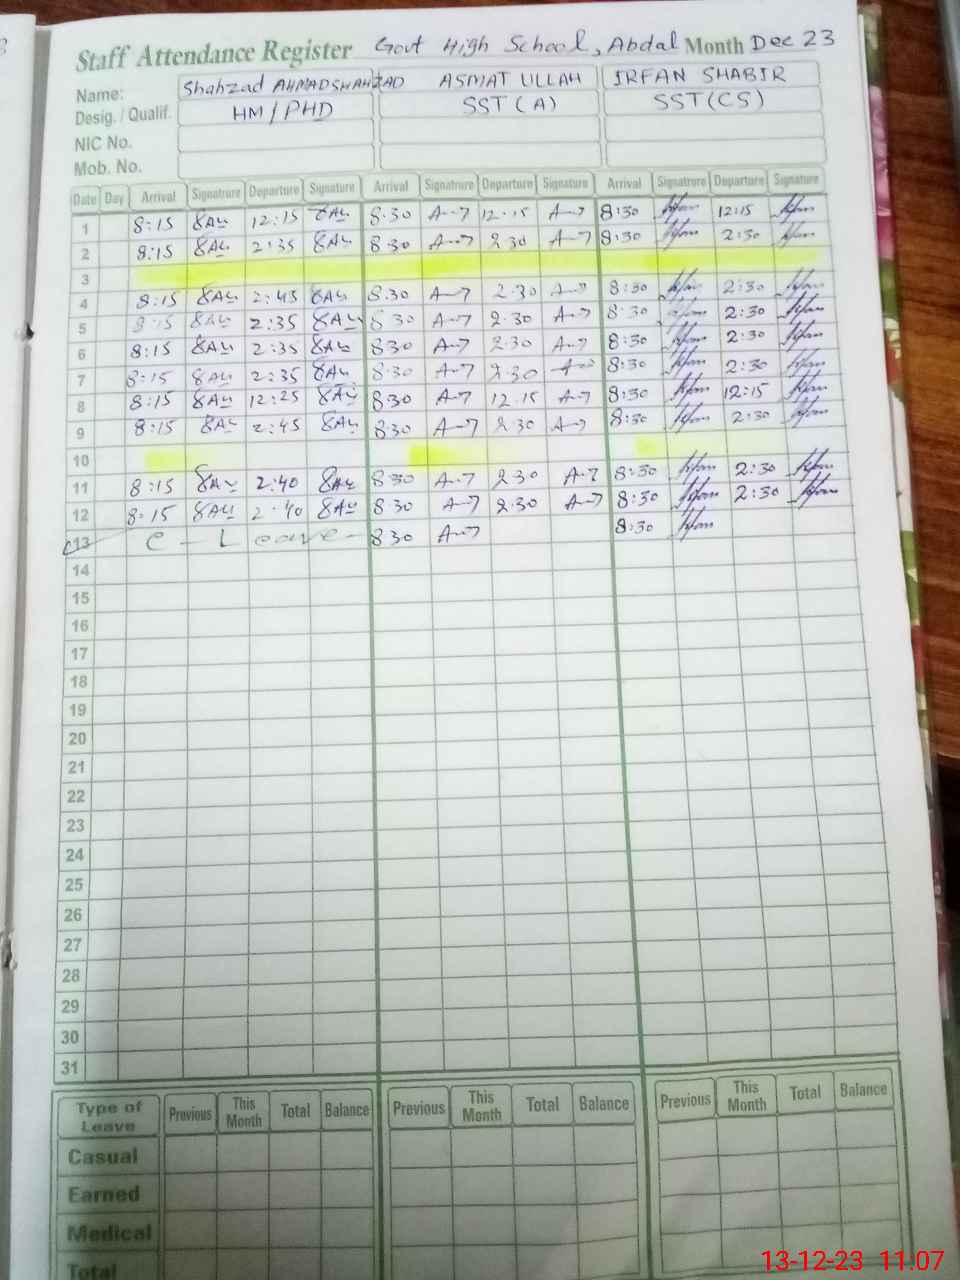 Staff Attendance Register Govt High School, Abdal Month Dec 23
Name: Shahzad AHMADSHAHZAD ASMAT ULLAH IRFAN SHABIR
Desig. / Qualif. HM/PHD SST (A) SST (CS)
NIC No.
Mob. No.
Date Day Arrival Signatrure Departure Signature Arrival Signatrure Departure Signature Arrival Signatrure Departure Signature
1 8:15 12:15 8:30 12.15 8:30 12:15
2 8:15 2:35 8.30 2.30 8:30 2:30
3
4 8:15 2:45 8.30 2.30 8:30 2:30
5 8:15 2:35 8 30 2.30 8:30 2:30
6 8:15 2:35 8:30 2.30 8:30 2:30
7 8:15 2:35 8:30 2:30 8:30 2:30
8 8:15 12:25 8:30 12.15 8:30 12:15
9 8:15 2:45 8:30 2.30 8:30 2:30
10
11 8:15 2:40 8:30 2.30 8:30 2:30
12 8:15 2:40 8.30 2.30 8:30 2:30
13 C - Leave - 8:30 8:30
14
15
16
17
18
19
20
21
22
23
24
25
26
27
28
29
30
31
Type of Leave Previous This Month Total Balance Previous This Month Total Balance Previous This Month Total Balance
Casual
Earned
Medical
Total
13-12-23 11:07